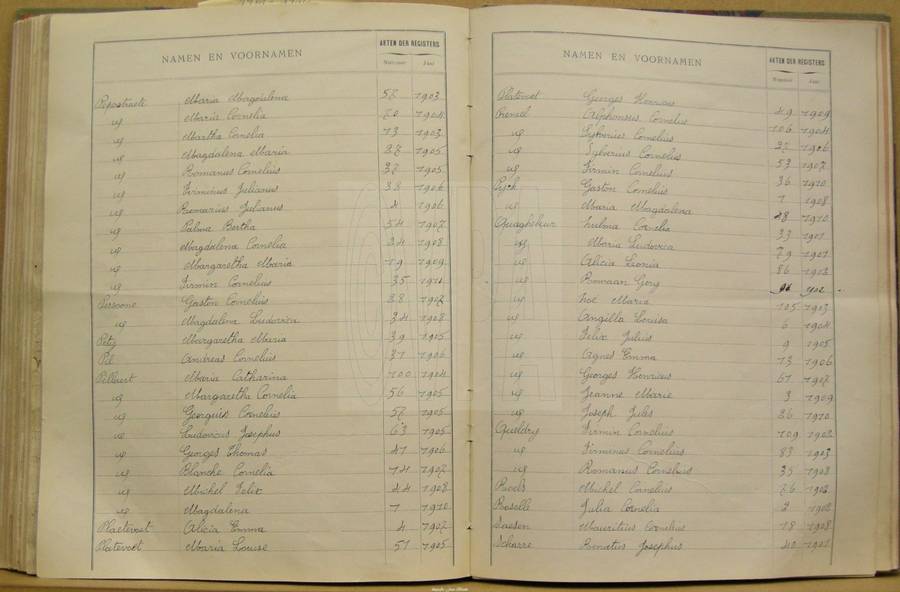 NAMEN EN VOORNAMEN AKTEN DER REGISTERS
Nummer Jaar
Maria Magdalena 57 1903
id Maria Cornelia 70 1904
id Martha Cornelia 73 1903
id Magdalena Maria 27 1905
id Romanus Cornelius 37 1905
id Firminus Julianus 38 1906
id Romarius Julianus 1906
id Palma Bertha 54 1907
id Magdalena Cornelia 24 1908
id Margaretha Maria 19 1909
id Firmin Cornelius 35 1910
Persoone Gaston Cornelius 28 1907
id Magdalena Ludovica 34 1908
Margaretha Maria 39 1905
Pil Andreas Cornelius 31 1906
Pillaert Maria Catharina 100 1904
id Margaretha Cornelia 56 1905
id Georgius Cornelius 57 1905
id Ludovicus Josephus 63 1905
id Georges Thomas 41 1906
id Blanche Cornelia 14 1907
id Michel Felix 44 1908
id Magdalena 1 1910
Plaetevoet Alicia Emma 4 1907
Platevoet Maria Louise 51 1905
NAMEN EN VOORNAMEN AKTEN DER REGISTERS
Nummer Jaar
Platevoet Georges Henricus 49 1909
Alphonsus Cornelius 106 1904
id Sylverius Cornelius 27 1906
id Sylverius Cornelius 53 1907
id Firmin Cornelius 36 1910
Gaston Cornelius 1 1908
id Maria Magdalena 28 1910
Quaghebeur Cornelia 33 1901
id Maria Ludovica 79 1901
id Alicia Leonia 86 1902
id Romaan Gery 1902
id Maria 105 1903
id Angilla Louisa 6 1904
id Felix Julius 9 1905
id Agnes Emma 13 1906
id Georges Henricus 61 1907
id Jeanne Marie 3 1909
id Joseph Jules 26 1910
Queldry Firmin Cornelius 109 1902
id Firminus Cornelius 83 1903
id Romanus Cornelius 35 1908
Roels Michel Cornelius 76 1902
Roselle Julia Cornelia 2 1902
Sassen Mauritius Cornelius 18 1908
Scharre Renatus Josephus 40 1901